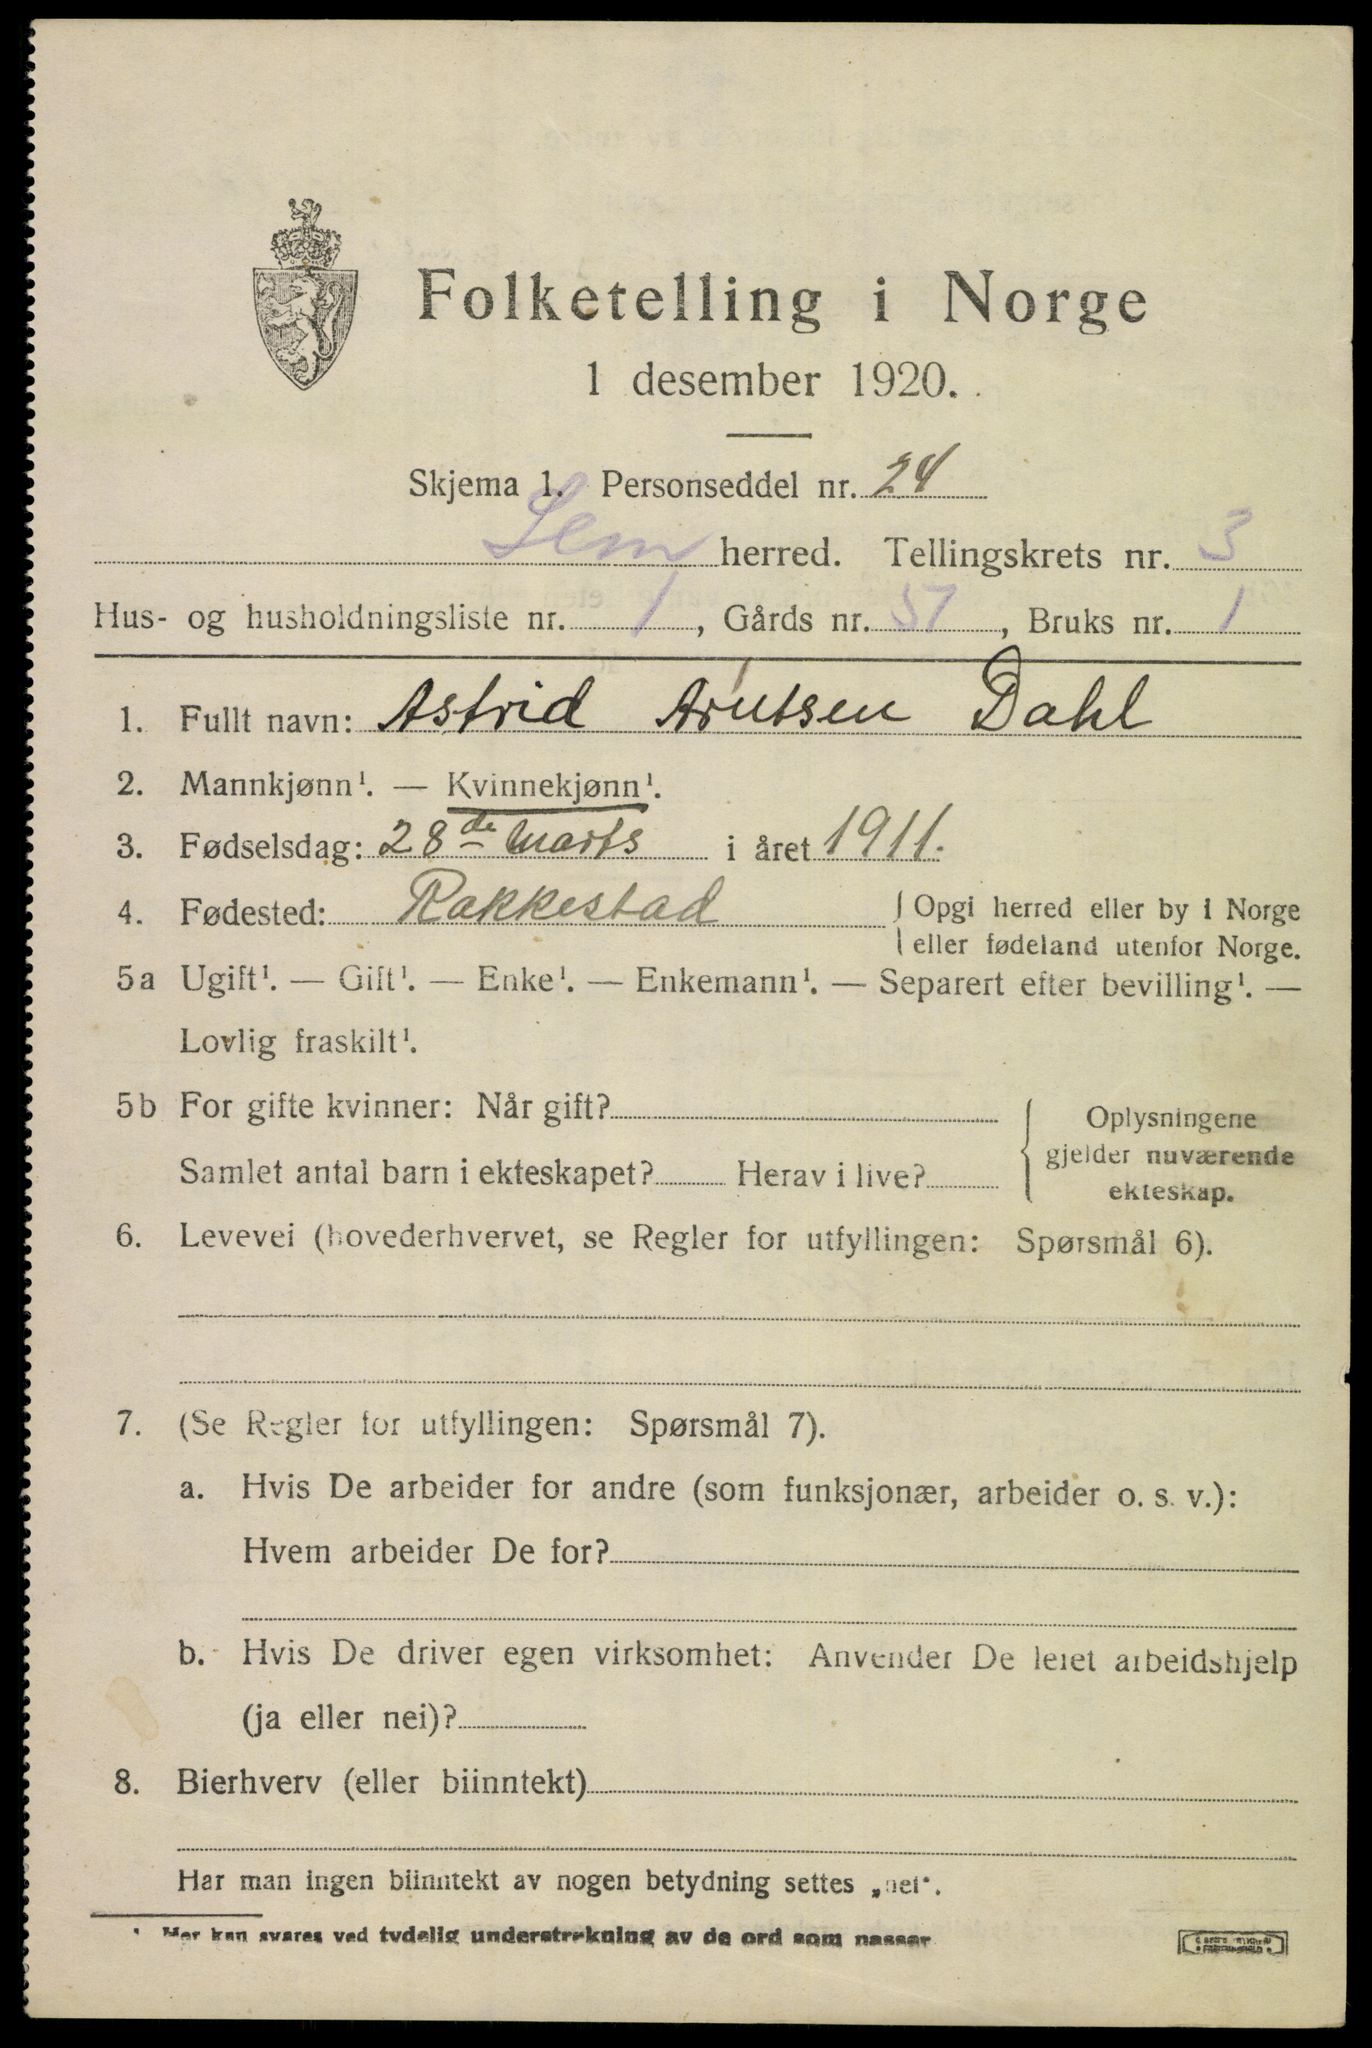 Folketelling i Norge
1 desember 1920.
Skjema 1. Personseddel nr. 24
Sem herred. Tellingskrets nr. 3
Hus- og husholdningsliste nr. 1, Gårds nr. 51, Bruks nr. 1
1. Fullt navn: Astrid Arntsen Dahl
2. Mannkjønn¹. — Kvinnekjønn¹.
3. Fødselsdag: 28de Marts i året 1911.
4. Fødested: Rakkestad { Opgi herred eller by i Norge
eller fødeland utenfor Norge.
5a Ugift¹. — Gift¹. — Enke¹. — Enkemann¹. — Separert efter bevilling¹. —
Lovlig fraskilt¹.
5b For gifte kvinner: Når gift?
Samlet antal barn i ekteskapet? Herav i live?
{ Oplysningene
gjelder nuværende
ekteskap.
6. Levevei (hovederhvervet, se Regler for utfyllingen: Spørsmål 6).
7. (Se Regler for utfyllingen: Spørsmål 7).
a. Hvis De arbeider for andre (som funksjonær, arbeider o. s. v.):
Hvem arbeider De for?
b. Hvis De driver egen virksomhet: Anvender De leiet arbeidshjelp
(ja eller nei)?
8. Bierhverv (eller biinntekt)
Har man ingen biinntekt av nogen betydning settes „nei".
¹ Her kan svares ved tydelig understrekning av de ord som passer